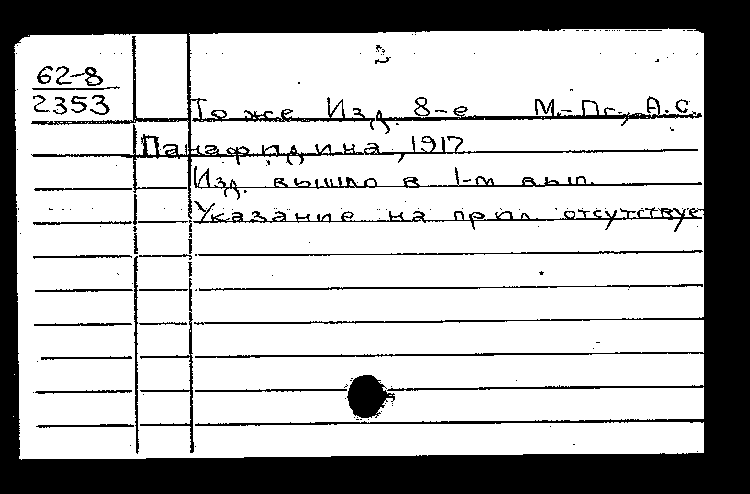 2
62-8
2353
То же Изд. 8-е М.-Пг., А.С.
Панафидина, 1917
Изд. вышло в 1-м вып.
Указание на прил. отсутствуе